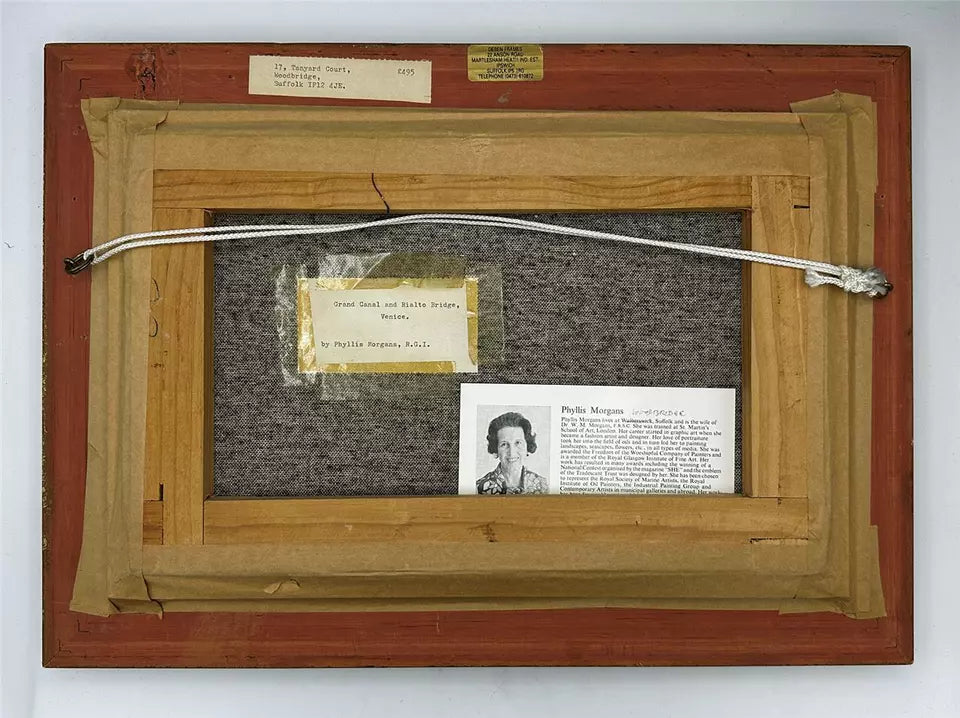 17, Tanyard Court,
Woodbridge,
Suffolk IP12 4JE.
£495
DEBEN FRAMES
22 ANSON ROAD
MARTLESHAM HEATH IND. EST.
IPSWICH
SUFFOLK IP5
TELEPHONE (0473) 610872
Grand Canal and Rialto Bridge,
Venice.
by Phyllis Morgans, R.G.I.
Phyllis Morgans WOODBRIDGE
Phyllis Morgans lives at Walberswick, Suffolk and is the wife of
Dr. W. M. Morgans, She was trained at St. Martin's
School of Art, London. Her career started in graphic art when she
became a fashion artist and designer. Her love of portraiture
took her into the field of oils and in turn led her to painting
landscapes, seascapes, flowers, etc., in all types of media. She was
awarded the Freedom of the Worshipful Company of Painters and
is a member of the Royal Glasgow Institute of Fine Art. Her
work has resulted in many awards including the winning of a
National Contest organised by the magazine "SHE" and the emblem
of the Tradescant Trust was designed by her. She has been chosen
to represent the Royal Society of Marine Artists, the Royal
Institute of Oil Painters, the Industrial Painting Group and
Contemporary Artists in municipal galleries and abroad. Her work